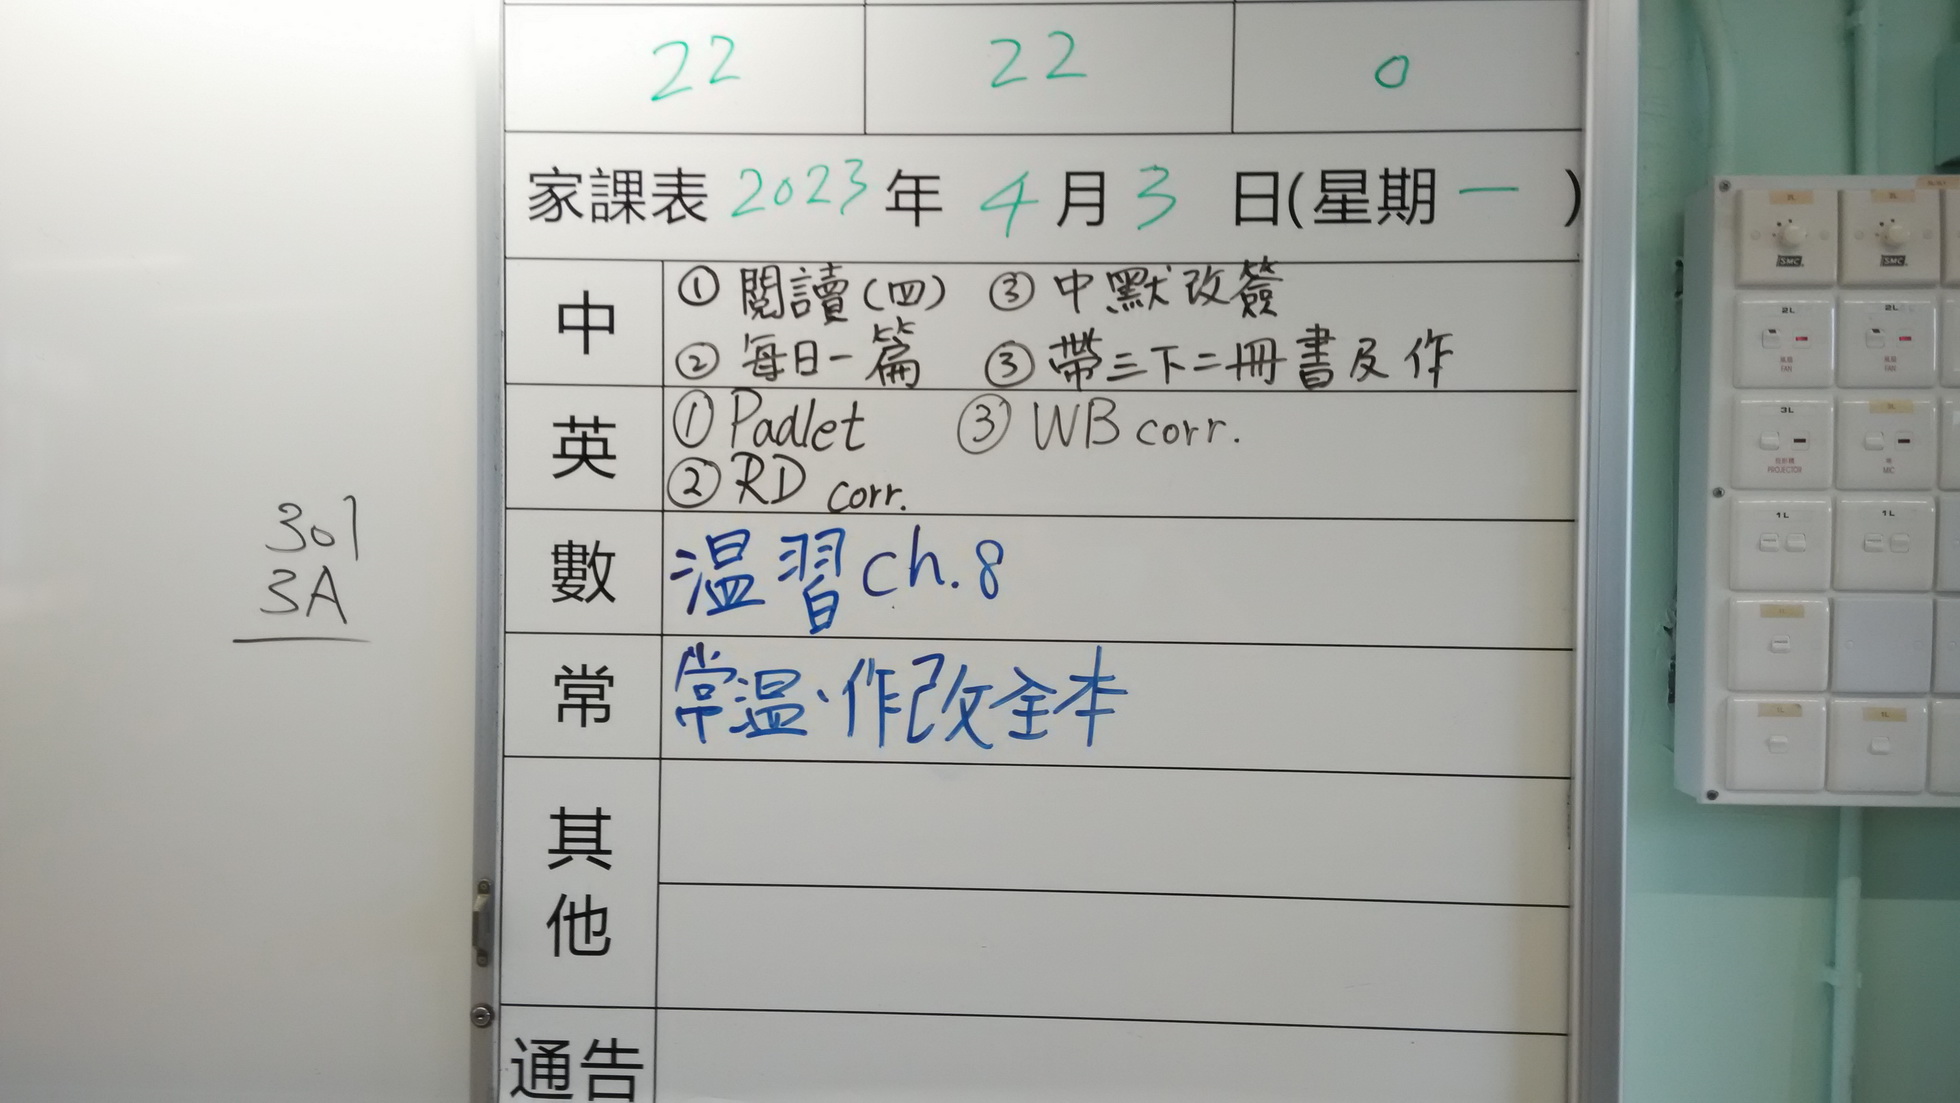 22 22 0
家課表 2023 年 4 月 3 日(星期 一 )
中 ① 閱讀(四) ③ 中默改簽
② 每日一篇 ③ 帶三下二冊書及作
英 ① Padlet ③ WB corr.
② RD corr.
數 温習 ch. 8
常 常温、作改全本
其他
通告
301
3A
2L 2L
SMC SMC
2L 2L
FAN FAN
3L
PROJECTOR MIC
1L 1L